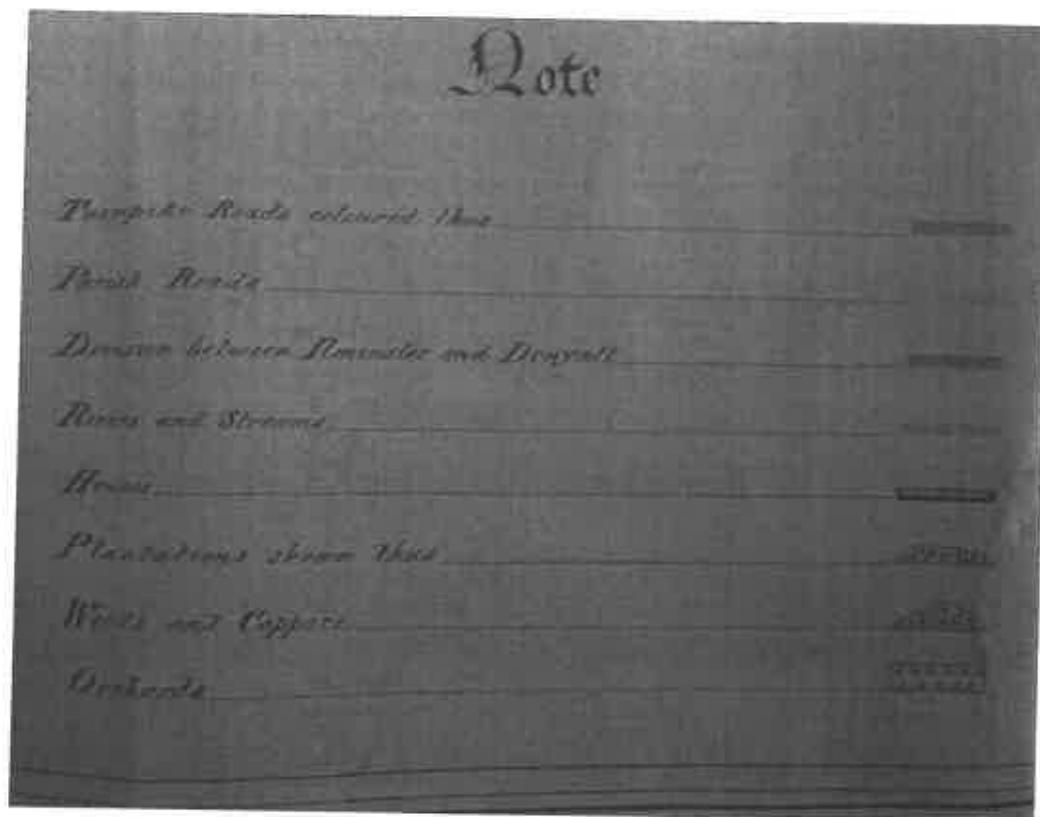 Note
Turnpike Roads coloured thus
Parish Roads
Division between Ilminster and Donyatt
Rivers and Streams
Houses
Plantations shown thus
Woods and Coppice
Orchards